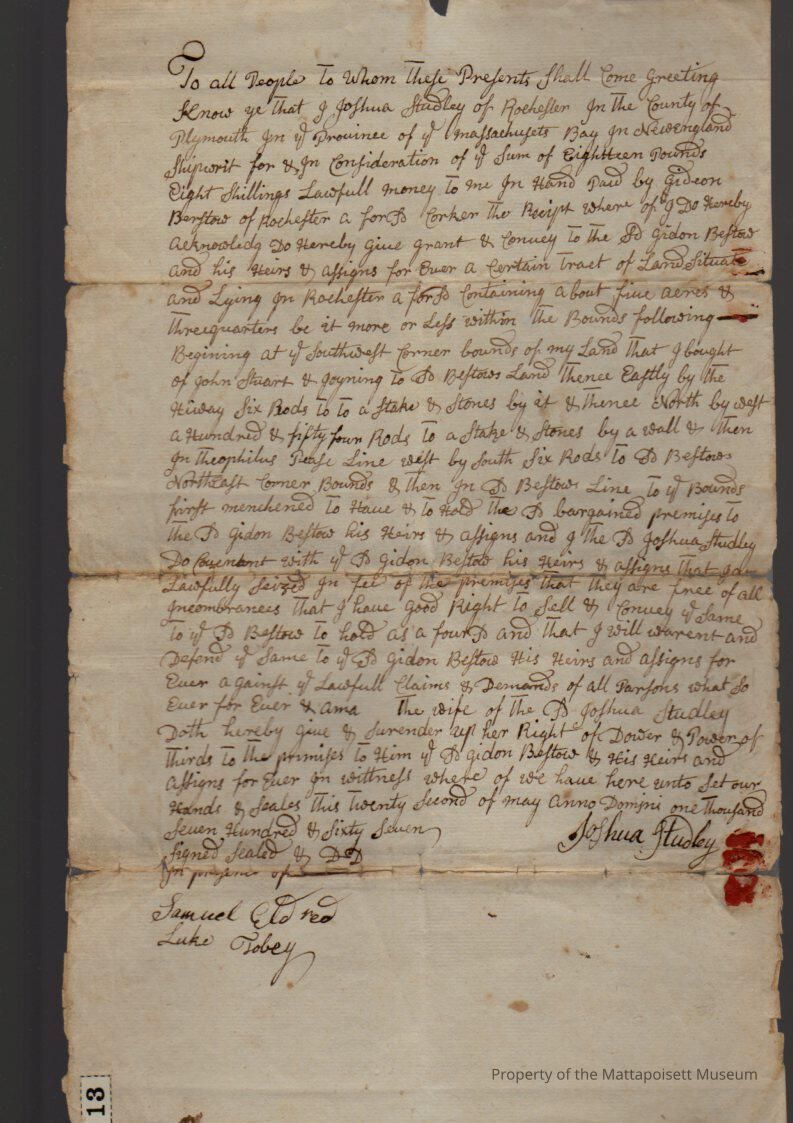 To all People To Whom These Presents Shall Come Greeting
Know ye that I Joshua Studley of Rochester In the County of
Plymouth In yͤ Province of yͤ Massachusets Bay In Newengland
Shipwrit for & In Consideration of yͤ Sum of Eighteen Pounds
Eight Shillings Lawfull money To me In Hand Paid by Gideon
Berstow of Rochester a forsd Corker the Recipt where of I Do Hereby
acknowledg Do Hereby Giue grant & Convey To the sd Gidon Bestow
and his Heirs & assigns for Euer a Certain Tract of Land Situate
and Lying In Rochester a forsd Containing about fiue acres &
Threequarters be it more or Less within the Bounds following
Begining at yͤ Southwest Corner bounds of my Land That I bought
of John Stuart & Joyning To sd Bestows Land Thence Eastly by the
Hiway Six Rods to to a Stake & Stones by it & Thence North by west
a Hundred & fifty four Rods To a Stake & Stones by a wall & Then
In Theophilus Pease Line west by South Six Rods To sd Bestows
Northeast Corner Bounds & then In sd Bestows Line To yͤ Bounds
first menchened To Haue & to Hold The sd bargained premises to
the sd Gidon Bestow his Heirs & assigns and I the sd Joshua Studley
Do Covenant with yͤ sd Gidon Bestow his Heirs & assigns that I am
Lawfully Seized In fee of the premises that they are free of all
Incombrances That I have Good Right To Sell & Convey yͤ Same
To yͤ sd Bestow To hold as a foursd and That I will warent and
Defend yͤ Same to yͤ sd Gidon Bestow His Heirs and assigns for
Euer against yͤ Lawfull Claims & Demands of all Parsons what So
Euer for Euer & ama The wife of the sd Joshua Studley
Doth hereby giue & Surender up her Right of Dower & Power of
Thirds to the premises to Him yͤ sd Gidon Bestow & His Heirs and
assigns for Euer In wittness where of we have here unto Set our
Hands & Seales This Twenty Second of may anno Domini one Thousand
Seven Hundred & Sixty Seven
Joshua Studley
Signed Sealed & DD
In presence of
Samuel Eldred
Luke Tobey
Property of the Mattapoisett Museum
13